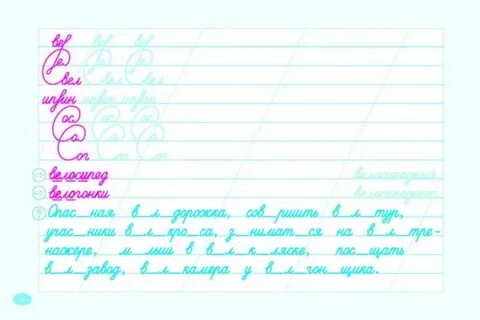 веј веј веј
Је Је Је
вел вел вел
Ос ос ос
о о о
Оп оп оп
велосипед велосипедный
велогонки велосипедист
Опас_ная в_л_дорожка, сов_ршить в_л_тур,
учас_ники в_л_кро_са, з_нимат_ся на в_л_тре-
нажере, м_лыш в в_л_к_ляске, пос_щать
в_л_завод, в_л_камера у в_л_гон_щика.